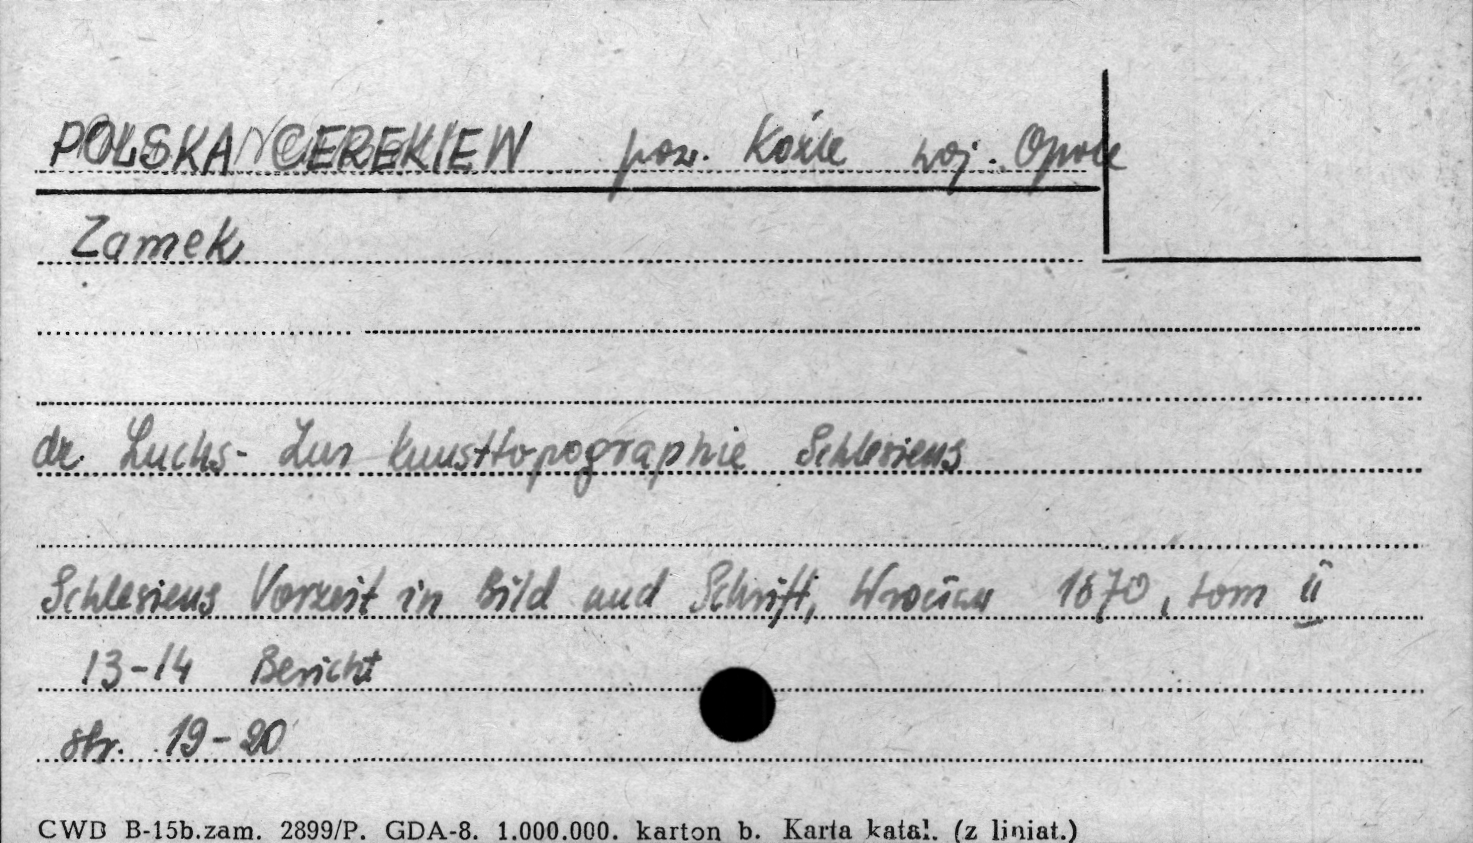 POLSKA CEREKIEW pow. Koźle woj. Opole
Zamek
dr. Luchs - Zur Kunsttopographie Schlesiens
Schlesiens Vorzeit in Bild und Schrift, Wrocław 1870, tom II
13-14 Bericht
str. 19-20
CWD B-15b.zam. 2899/P. GDA-8. 1.000.000. karton b. Karta katal. (z liniat.)